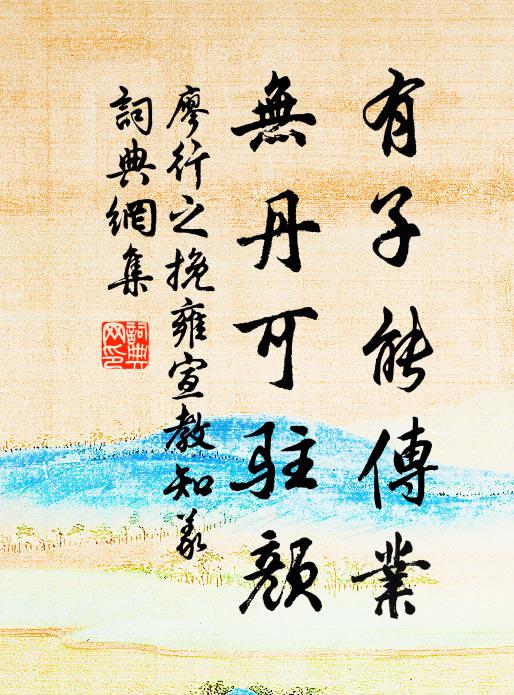 有子能傳業
無丹可駐顏
廖行之挽雍宣教知義
詞典網集
詞典
網印